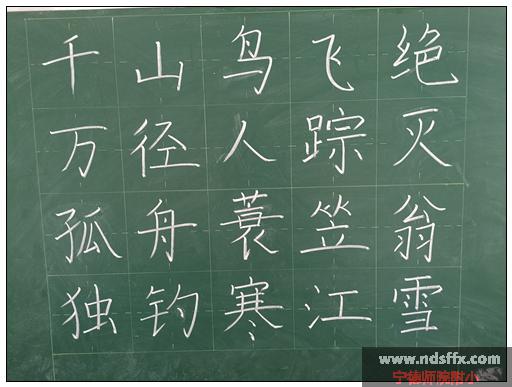 千山鸟飞绝
万径人踪灭
孤舟蓑笠翁
独钓寒江雪
www.ndsffx.com
宁德师院附小